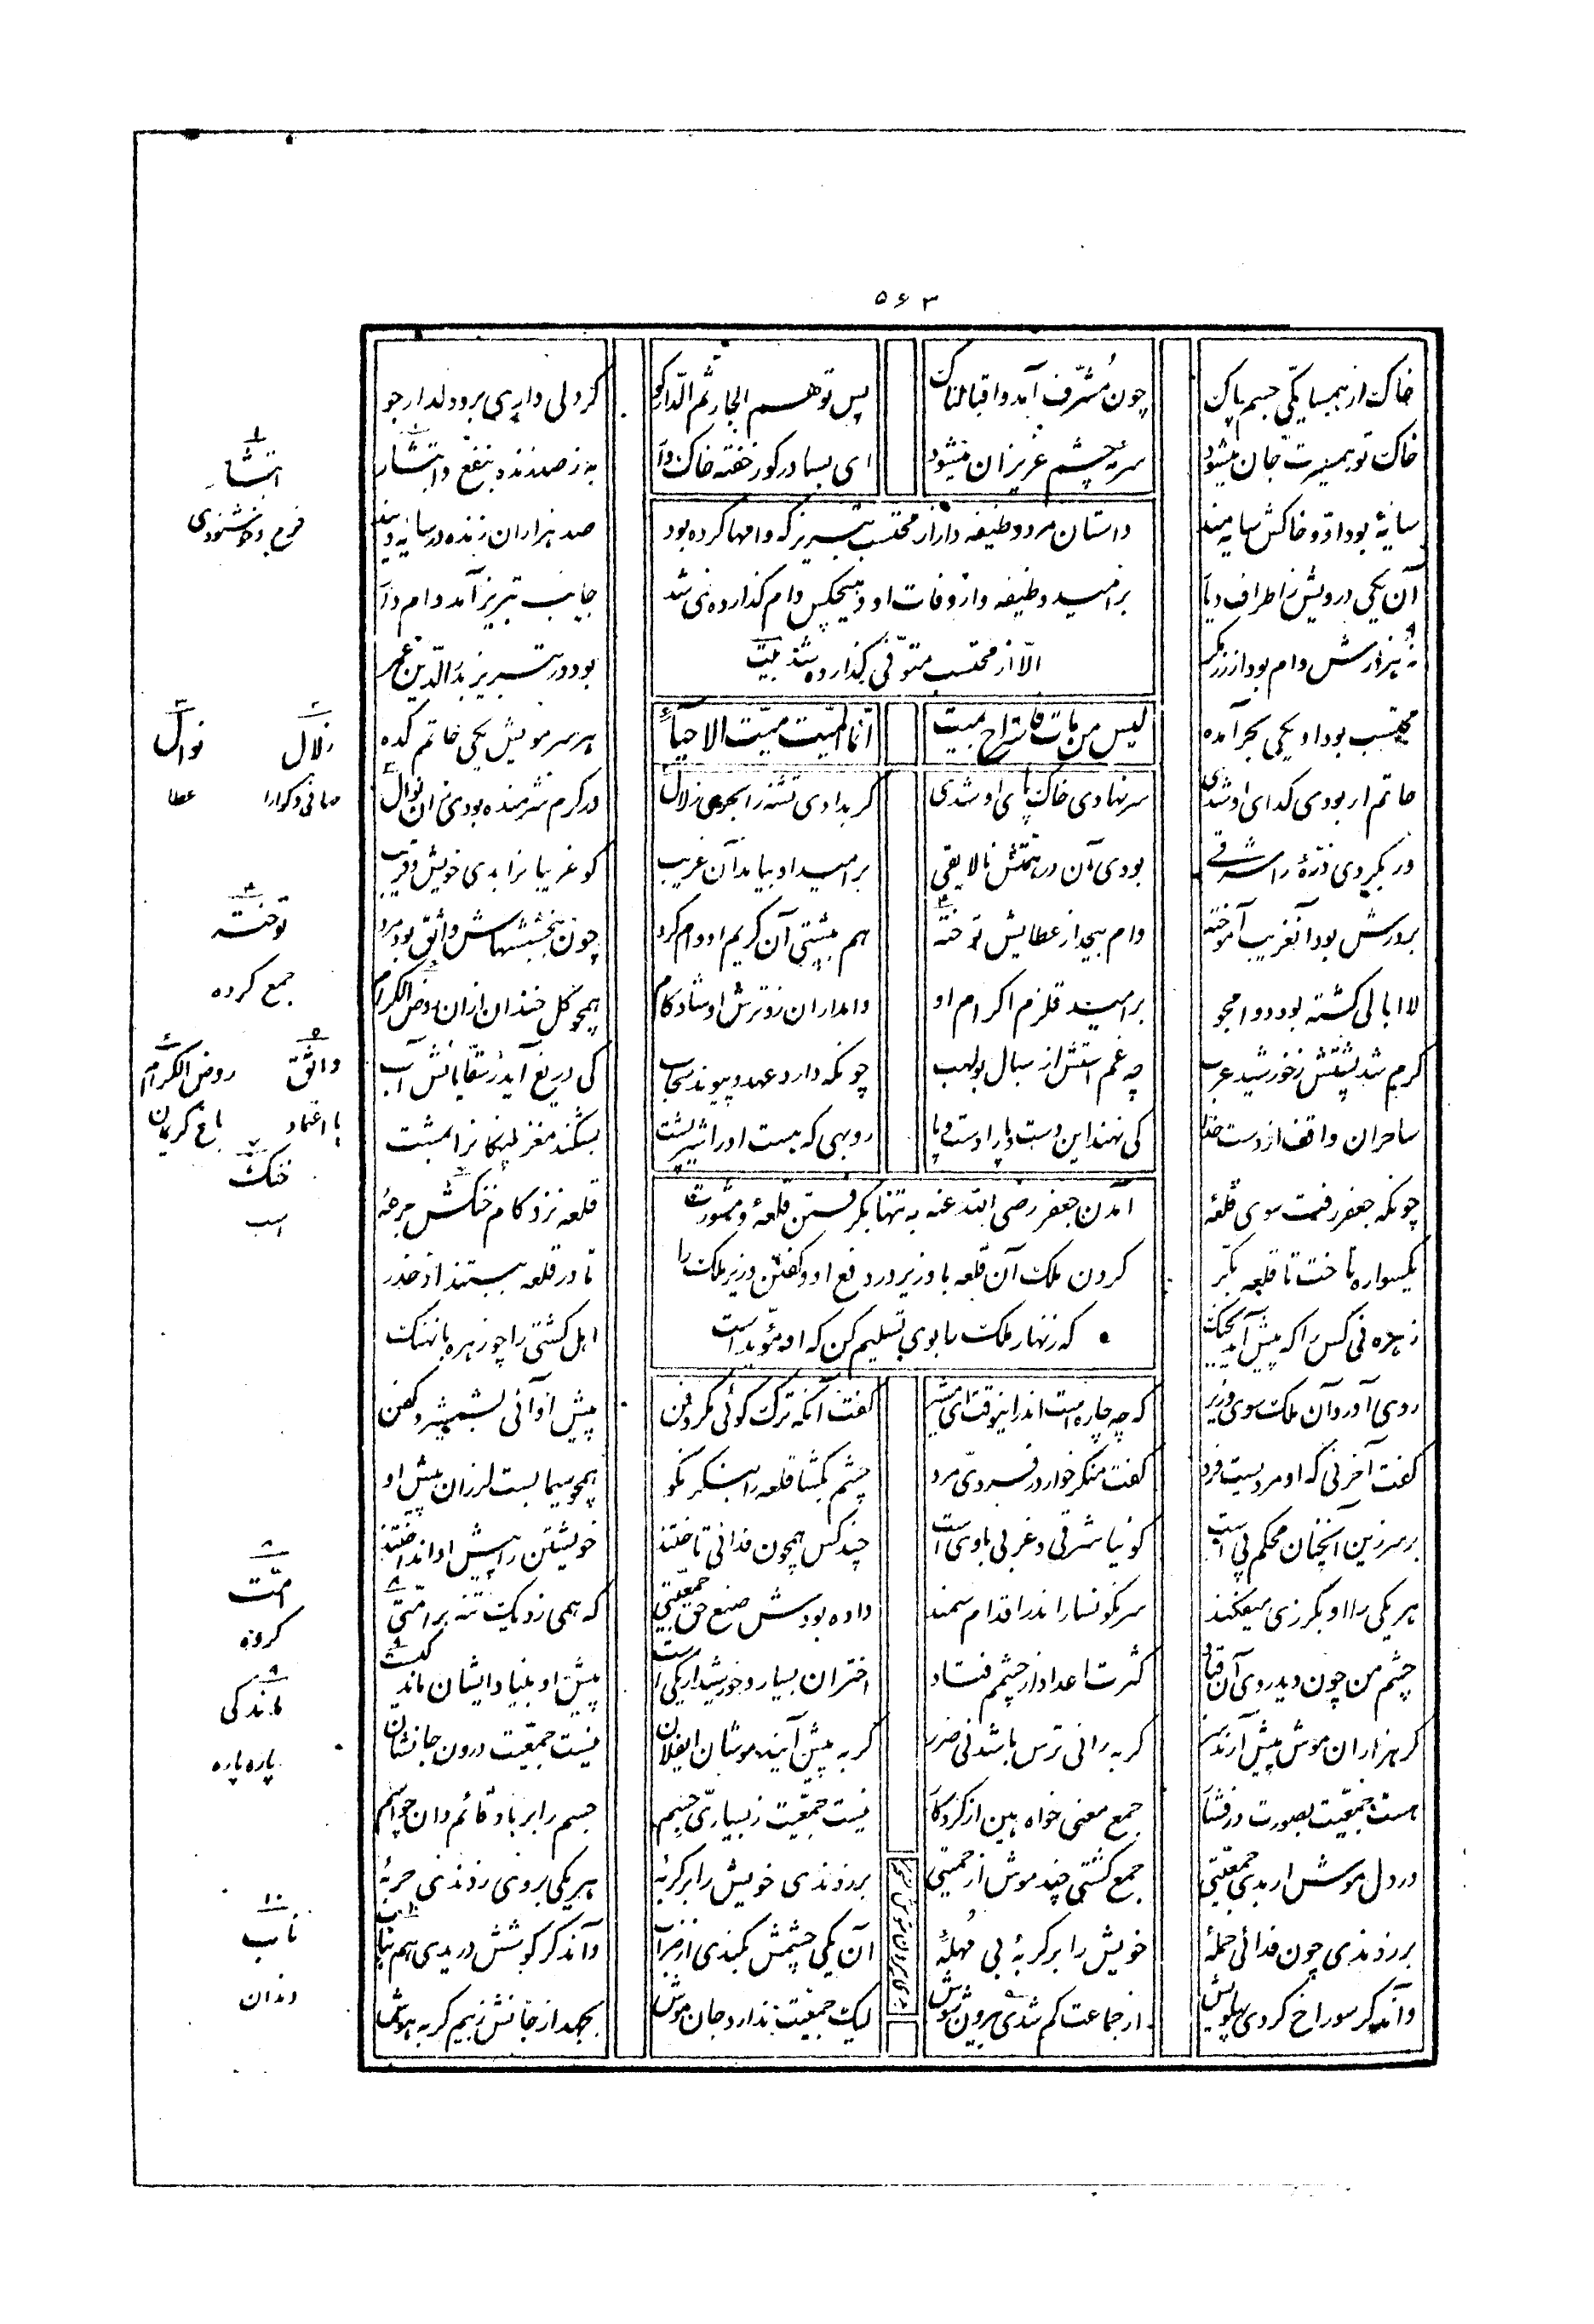 ۵۶۳
خاک از همسایگی جسم پاک چون مشرّف آمد و اقبالناک پس تو هم الجار ثم الدّار گو گر دلی داری برو دلدار جو
خاک تو همسیرت جان میشود سرمهٔ چشم عزیزان میشود ای بسا در گور خفته خاک وار به ز صد زنده بنفع و ابتشار
سایهٔ بود او و خاکش سایه مند صد هزاران زنده در سایه ویند
داستان مرد وظیفه دار از محتسب تبریز که وامها کرده بود
بر امید وظیفه و از وفات او هیچکس وام گذارده نمی شد
الّا از محتسب متوفّی گذارده شد بیت
آن یکی درویش ز اطراف دیار جانب تبریز آمد وام دار
نه هزارش وام بود از زر مگر بود در تبریز بدر الدّین عمر
لیس من مات فاستراح بمیت انّما المیّت میّت الاحیآء
محتسب بود او یکی بحر آمده هر سر مویش یکی حاتم کده
حاتم ار بودی گدای او شدی سر نهادی خاک پای او شدی گر بدادی تشنه را بحری زلال در کرم شرمنده بودی زان نوال
ور بکردی ذرّهٔ را مشرقی بودی آن در همّتش نالایقی بر امید او بیامد آن غریب کو غریبانرا بدی خویش و قریب
بر درش بود آن غریب آموخته وام بیحد از عطایش توخته هم بپشتی آن کریم او وام کرد چون ببخششهاش واثق بود مرد
لا ابالی گشته بود و وامجو بر امید قلزم اکرام او وامداران رو ترش او شادکام همچو گل خندان از آن روض الکرام
گرم شد پشتش ز خورشید عرب چه غم استش از سبال بولهب چونکه دارد عهد و پیوند سحاب کی دریغ آید ز سقّایانش آب
ساحران واقف از دست خدا کی نهند این دست و پا را دست و پا روبهی که هست او را شیر پشت بشکند مغز پلنگانرا بمشت
آمدن جعفر رضی الله عنه به تنها بگرفتن قلعهٔ و مشورت
کردن ملک آن قلعه با وزیر در دفع او و گفتن وزیر ملک را
که زنهار ملک را بوی تسلیم کن که او مؤید است
چونکه جعفر رفت سوی قلعهٔ قلعه نزد کام خنگش جرعهٔ
یکسواره تاخت تا قلعه بکر تا در قلعه ببستند از حذر
زهره نی کس را که پیش آید بجنگ اهل کشتی را چو زهره با نهنگ
روی آورد آن ملک سوی وزیر که چه چاره است اندر اینوقت ای مشیر گفت آنکه ترک گوئی مکر و فن پیش او آئی بشمشیر و کفن
گفت آخر نی که او مردیست فرد گفت منگر خوار در فردی مرد چشم بگشا قلعه را بنگر نکو همچو سیمابست لرزان پیش او
بر سر زین آنچنان محکم پی است گوئیا شرقی و غربی با وی است چند کس همچون فدائی تاختند خویشتن را پیش او انداختند
هر یکی را او بگرزی میفکند سر نگونسار اندر اقدام سمند داده بودش صنع حق جمعیّتی که همی زد یک تنه بر امّتی
چشم من چون دید روی آن قباد کثرت اعداد از چشمم فتاد اختران بسیار و خورشید ار یکی است پیش او بنیاد ایشان مندکیست
گر هزاران موش پیش آرند سر گربه را نی ترس باشد نی ضرر گر به پیش آیند موشان ایفلان نیست جمعیّت درون جانشان
هست جمعیّت بصورت در فشار جمع معنی خواه هین از کردگار نیست جمعیّت ز بسیاریّ جسم جسم را بر باد قائم دان چو اسم
در دل موش ار بدی جمعیّتی جمع گشتی چند موش از حمیّتی بر زدندی خویش را بر گربهٔ هر یکی بر وی زدندی حربهٔ
بر زدندی چون فدائی حملهٔ خویش را بر گربهٔ بی مهلهٔ آن یکی چشمش بکندی از ضراب وآن دگر گوشش دریدی هم بناب
وآن دگر سوراخ کردی پهلویش از جماعت گم شدی بیرون شوش لیک جمعیّت ندارد جان موش بجهد از جانش ز بیم گربه هوش
ابتشار
فرح و خوشنودی
زلال
صافی و گوارا
نوال
عطا
توخته
جمع کرده
واثق
با اعتماد
روض الکرام
باغ کریمان
خنگ
اسب
امّت
گروه
مندکی
پاره پاره
ناب
دندان